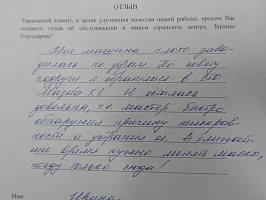 ОТЗЫВ
Уважаемый клиент, в целях улучшения качества нашей работы, просим Вас
оставить отзыв об обслуживании в нашем сервисном центре. Заранее
благодарны!
Моя машина плохо заво-
дилась по утрам. По совету
подруги я обратилась в это
И осталась
довольна, т.к. мастер быстро
обнаружил причину неисправ-
ности и устранил её. В ближай-
шее время нужно менять масло,
поеду только сюда!
Имя